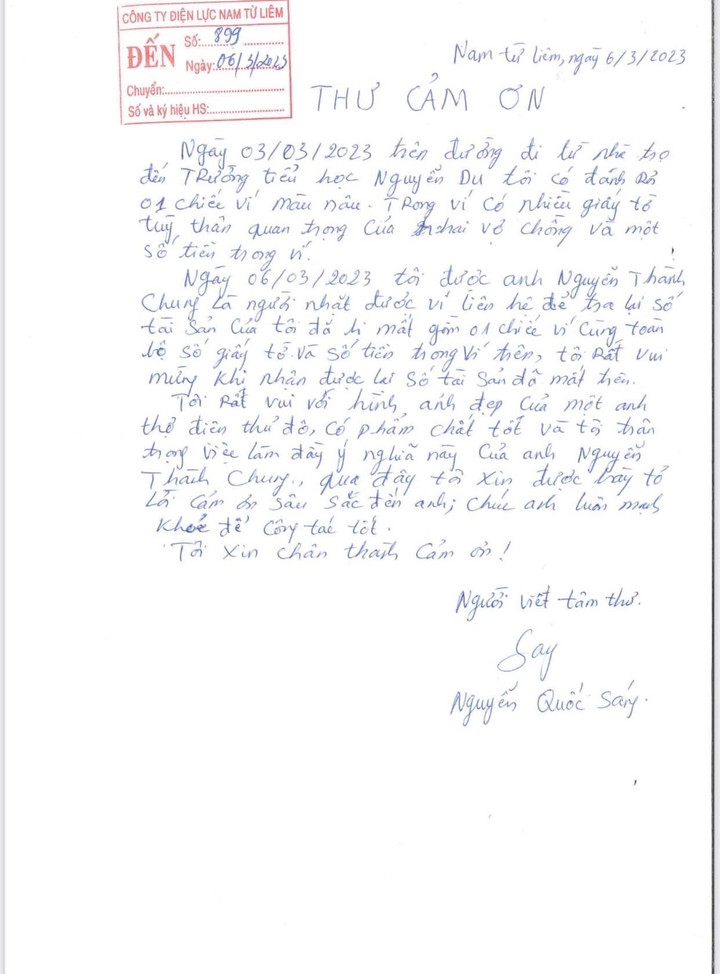 CÔNG TY ĐIỆN LỰC NAM TỪ LIÊM
ĐẾN
Số: 899
Ngày: 06/3/2023
Chuyển:
Số và ký hiệu HS:
Nam từ liêm, ngày 6/3/2023
THƯ CẢM ƠN
Ngày 03/03/2023 trên đường đi từ nhà trọ
đến TRường tiểu học Nguyễn Du tôi có đánh Rơi
01 chiếc ví màu nâu. TRong ví có nhiều giấy tờ
tuỳ thân quan trọng Của hai vợ chồng và một
số tiền trong ví.
Ngày 06/03/2023 tôi được anh Nguyễn Thành
Chung là người nhặt được ví liên hệ để trả lại số
tài sản Của tôi đã bị mất gồm 01 chiếc ví Cùng toàn
bộ số giấy tờ và số tiền trong ví trên, tôi Rất vui
mừng khi nhận được lại số tài sản đã mất trên.
Tôi Rất vui với hình ảnh đẹp Của một anh
thợ điện thủ đô, Có phẩm chất tốt và tôi trân
trọng việc làm đầy ý nghĩa này Của anh Nguyễn
Thành Chung., qua đây tôi xin được bày tỏ
Lời Cám ơn sâu sắc đến anh; chúc anh luôn mạnh
khoẻ để Công tác tốt.
Tôi xin chân thành Cảm ơn!
Người viết tâm thư.
Say
Nguyễn Quốc Sáy.